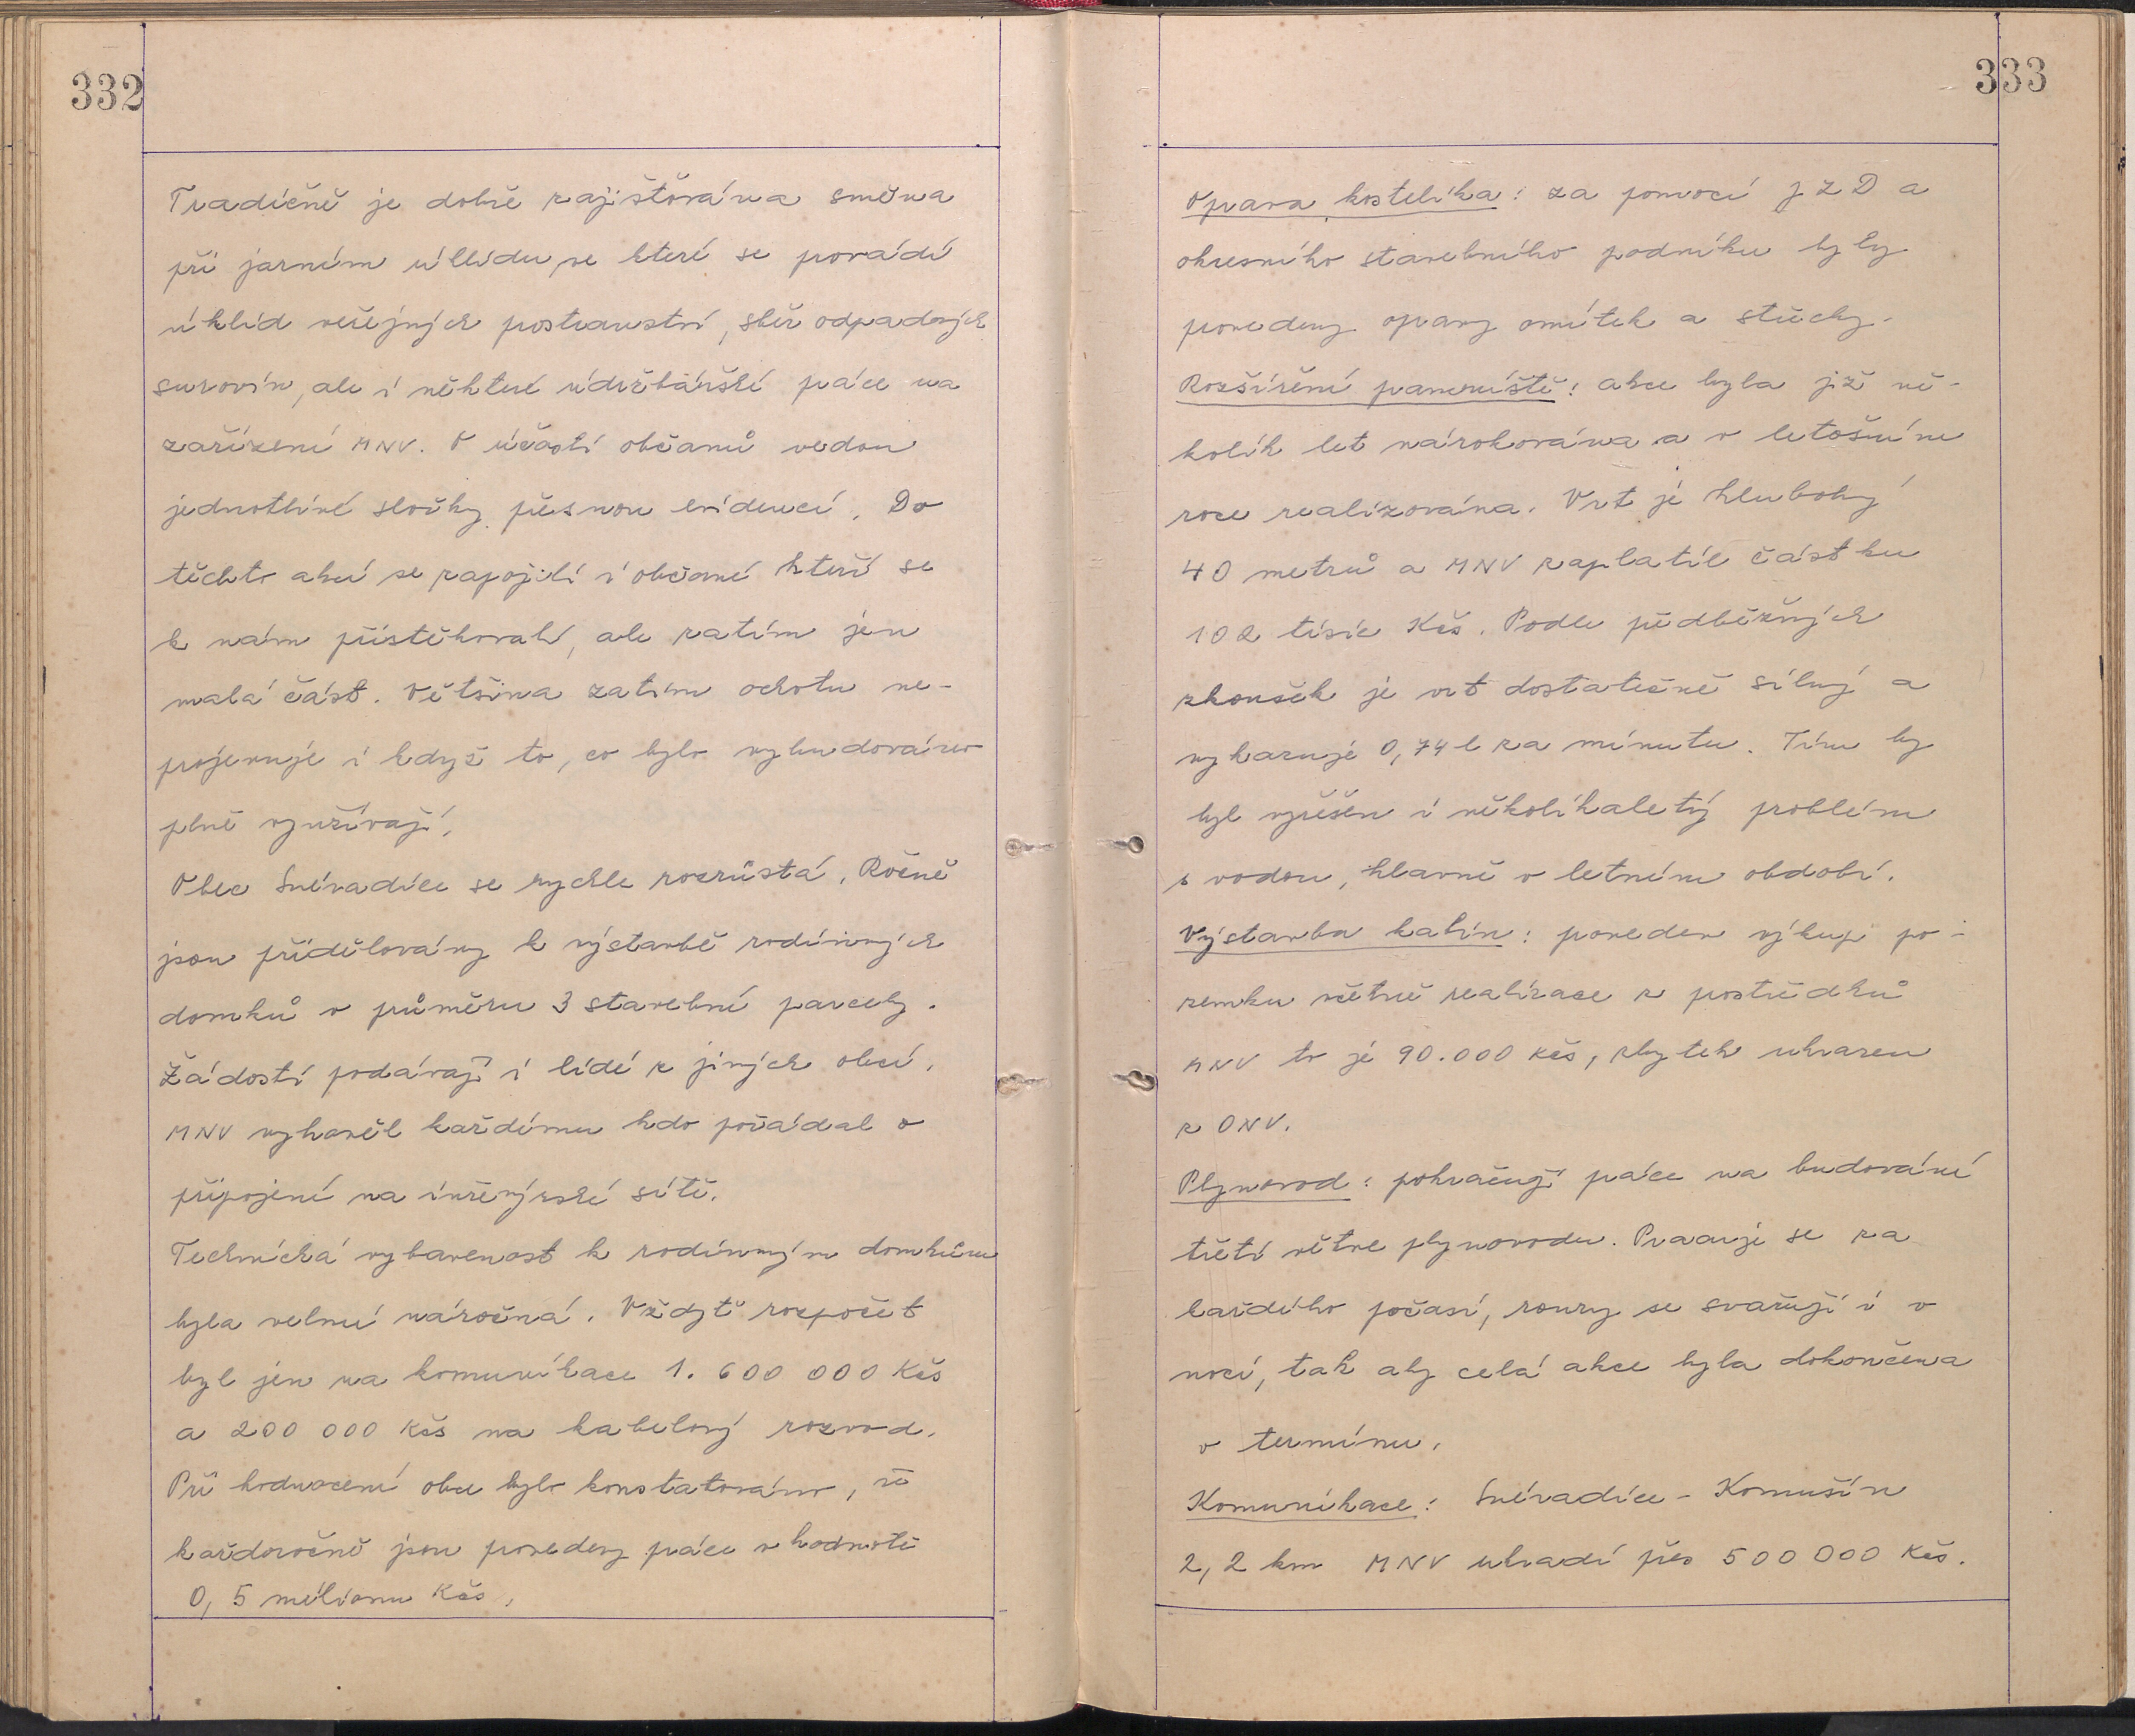 332
Tradičně je dobře zajišťována směna
při jarním úklidu, ve které se provádí
úklid veřejných prostranství, sběr odpadových
surovin, ale i některé údržbářské práce na
zařízení MNV. O účasti občanů vedou
jednotlivé složky přesnou evidenci. Do
těchto akcí se zapojili i občané kteří se
k nám přistěhovali, ale zatím jen
malá část. Většina zatím ochotu ne-
projevuje i když to, co bylo vybudováno
plně využívají.
Obec Svéradice se rychle rozrůstá. Ročně
jsou přidělovány k výstavbě rodinných
domků v průměru 3 stavební parcely.
Žádosti podávají i lidé z jiných obcí.
MNV vyhověl každému kdo požádal o
připojení na inženýrské sítě.
Technická vybavenost k rodinným domkům
byla velmi náročná. Vždyť rozpočet
byl jen na komunikace 1. 600 000 Kčs
a 200 000 Kčs na kabelový rozvod.
Při hodnocení obce bylo konstatováno, že
každoročně jsou provedeny práce v hodnotě
0,5 miliónu Kčs.
333
Oprava kostelíka: za pomoci JZD a
okresního stavebního podniku byly
provedeny opravy omítek a střechy.
Rozšíření prameniště: akce byla již ně-
kolik let nárokována a v letošním
roce realizována. Vrt je hluboký
40 metrů a MNV zaplatil částku
102 tisíc Kčs. Podle předběžných
zkoušek je vrt dostatečně silný a
vykazuje 0,74 l za minutu. Tím by
byl vyřešen i několikaletý problém
s vodou, hlavně v letním období.
Výstavba kabin: proveden výkup po-
zemku včetně realizace z prostředků
MNV to je 90.000 Kčs, zbytek uhrazen
z ONV.
Plynovod: pokračují práce na budování
třetí větve plynovodu. Pracuje se za
každého počasí, roury se svařují i v
noci, tak aby celá akce byla dokončena
v termínu.
Komunikace: Svéradice - Komušín
2,2 km MNV uhradí přes 500 000 Kčs.